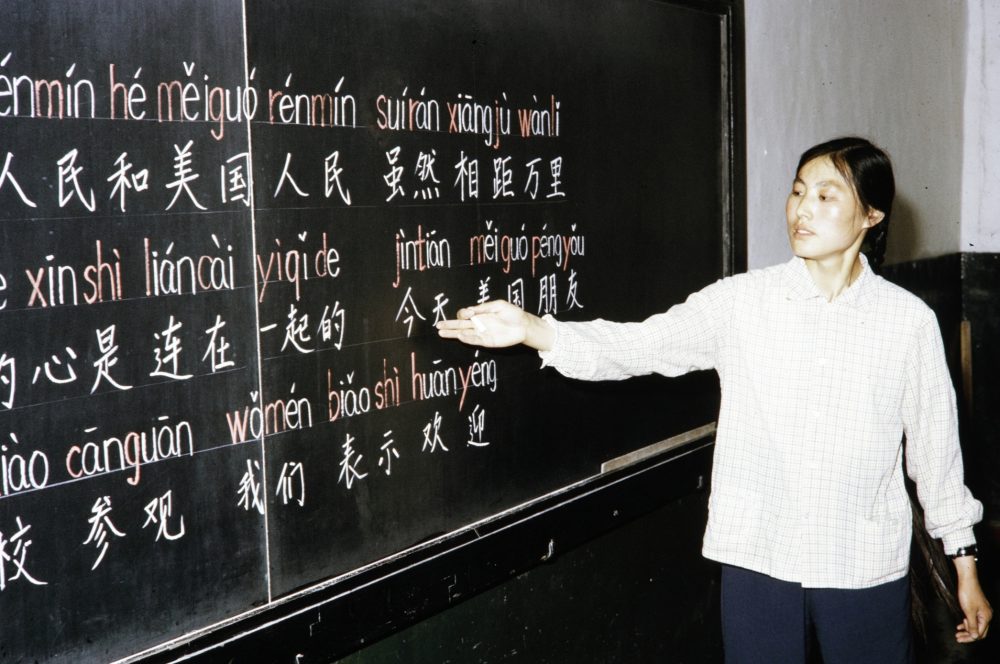 énmín hé měiguó rénmín suírán xiāngjù wànli
人民和美国人民 虽然相距万里
e xīnshì liáncài yìqǐ de jīntiān měiguó péngyǒu
的心是连在一起的 今天美国朋友
iào cānguān wǒmén biǎoshì huānyéng
校 参观 我们 表示欢迎